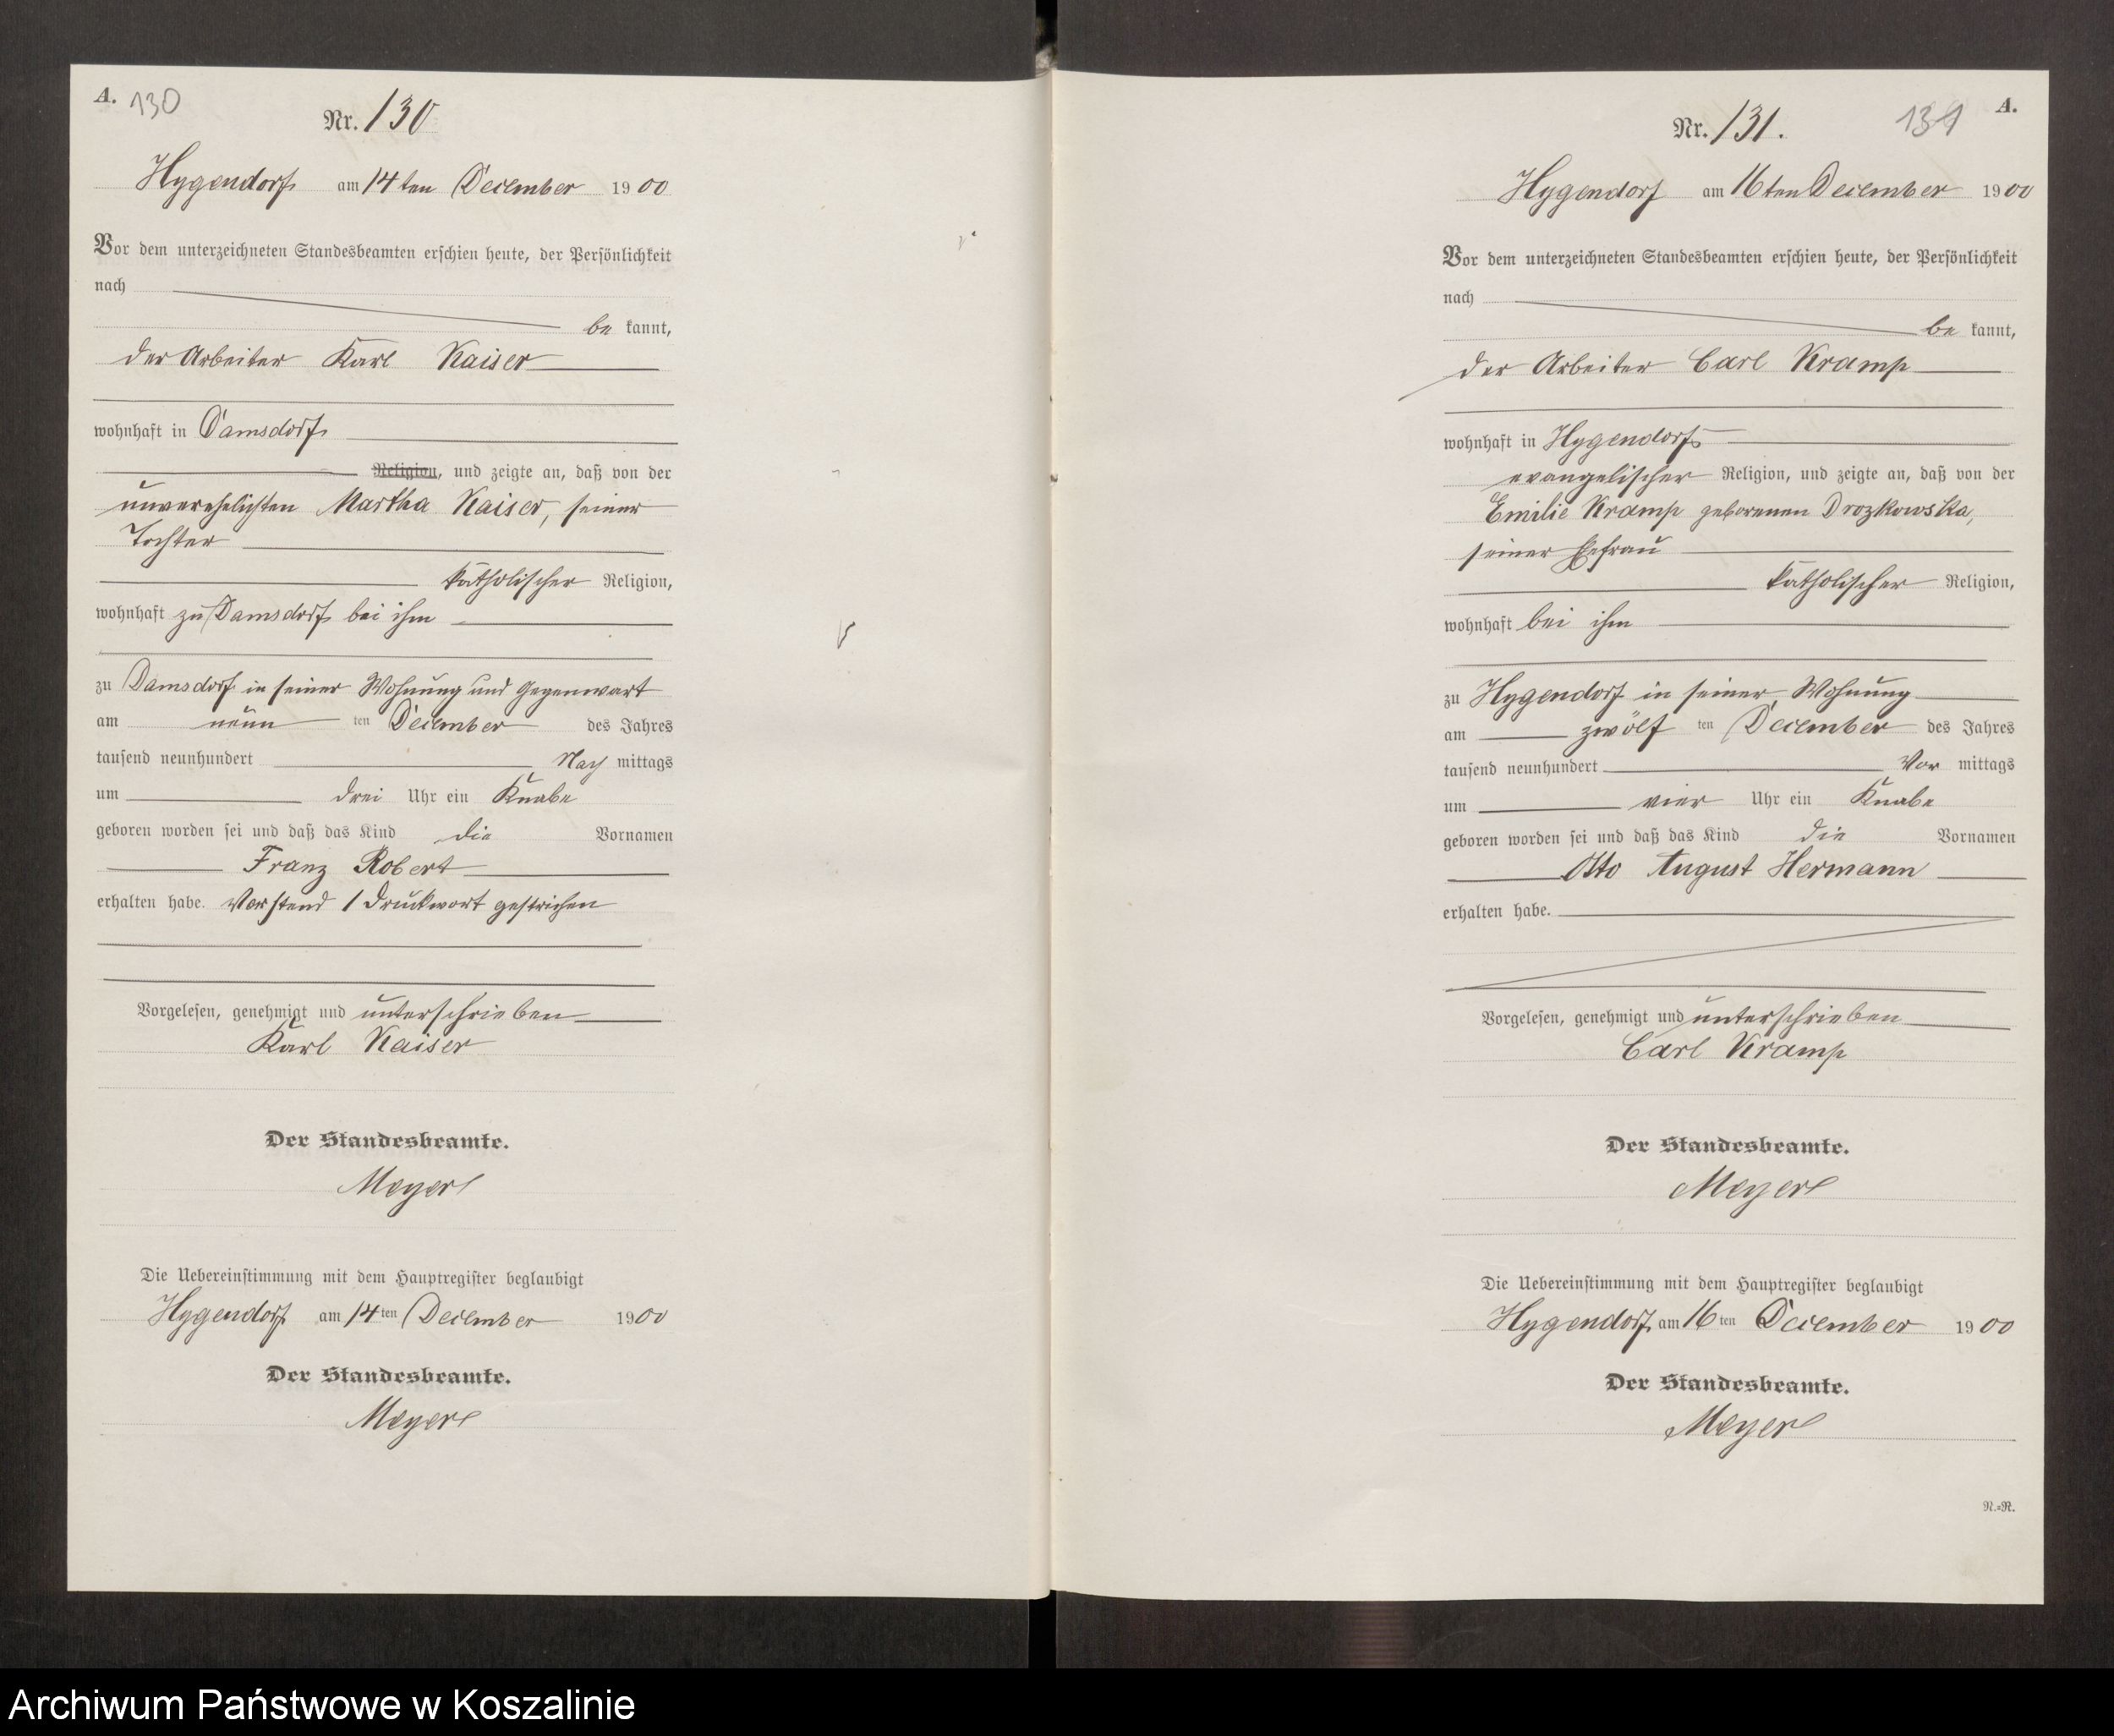 A. 130
Nr. 130
Hygendorf am 14ten December 1900
Vor dem unterzeichneten Standesbeamten erschien heute, der Persönlichkeit
nach
be kannt,
der Arbeiter Karl Kaiser
wohnhaft in Damsdorf
Religion, und zeigte an, daß von der
unverehelichten Martha Kaiser, seiner
Tochter
katholischer Religion,
wohnhaft zu Damsdorf bei ihm
zu Damsdorf in seiner Wohnung und Gegenwart
am neun ten December des Jahres
tausend neunhundert Nach mittags
um drei Uhr ein Knabe
geboren worden sei und daß das Kind die Vornamen
Franz Robert
erhalten habe. Vorstend 1 Druckwort gestrichen
Vorgelesen, genehmigt und unterschrieben
Karl Kaiser
Der Standesbeamte.
Meyer
Die Uebereinstimmung mit dem Hauptregister beglaubigt
Hygendorf am 14ten December 1900
Der Standesbeamte.
Meyer
A.
Nr. 131. 131
Hygendorf am 16ten December 1900
Vor dem unterzeichneten Standesbeamten erschien heute, der Persönlichkeit
nach
be kannt,
der Arbeiter Carl Kramp
wohnhaft in Hygendorf
evangelischer Religion, und zeigte an, daß von der
Emilie Kramp geborenen Drozkowska,
seiner Ehefrau
katholischer Religion,
wohnhaft bei ihm
zu Hygendorf in seiner Wohnung
am zwölf ten December des Jahres
tausend neunhundert Vor mittags
um vier Uhr ein Knabe
geboren worden sei und daß das Kind die Vornamen
Otto August Hermann
erhalten habe.
Vorgelesen, genehmigt und unterschrieben
Carl Kramp
Der Standesbeamte.
Meyer
Die Uebereinstimmung mit dem Hauptregister beglaubigt
Hygendorf am 16ten December 1900
Der Standesbeamte.
Meyer
N.=R.
Archiwum Państwowe w Koszalinie